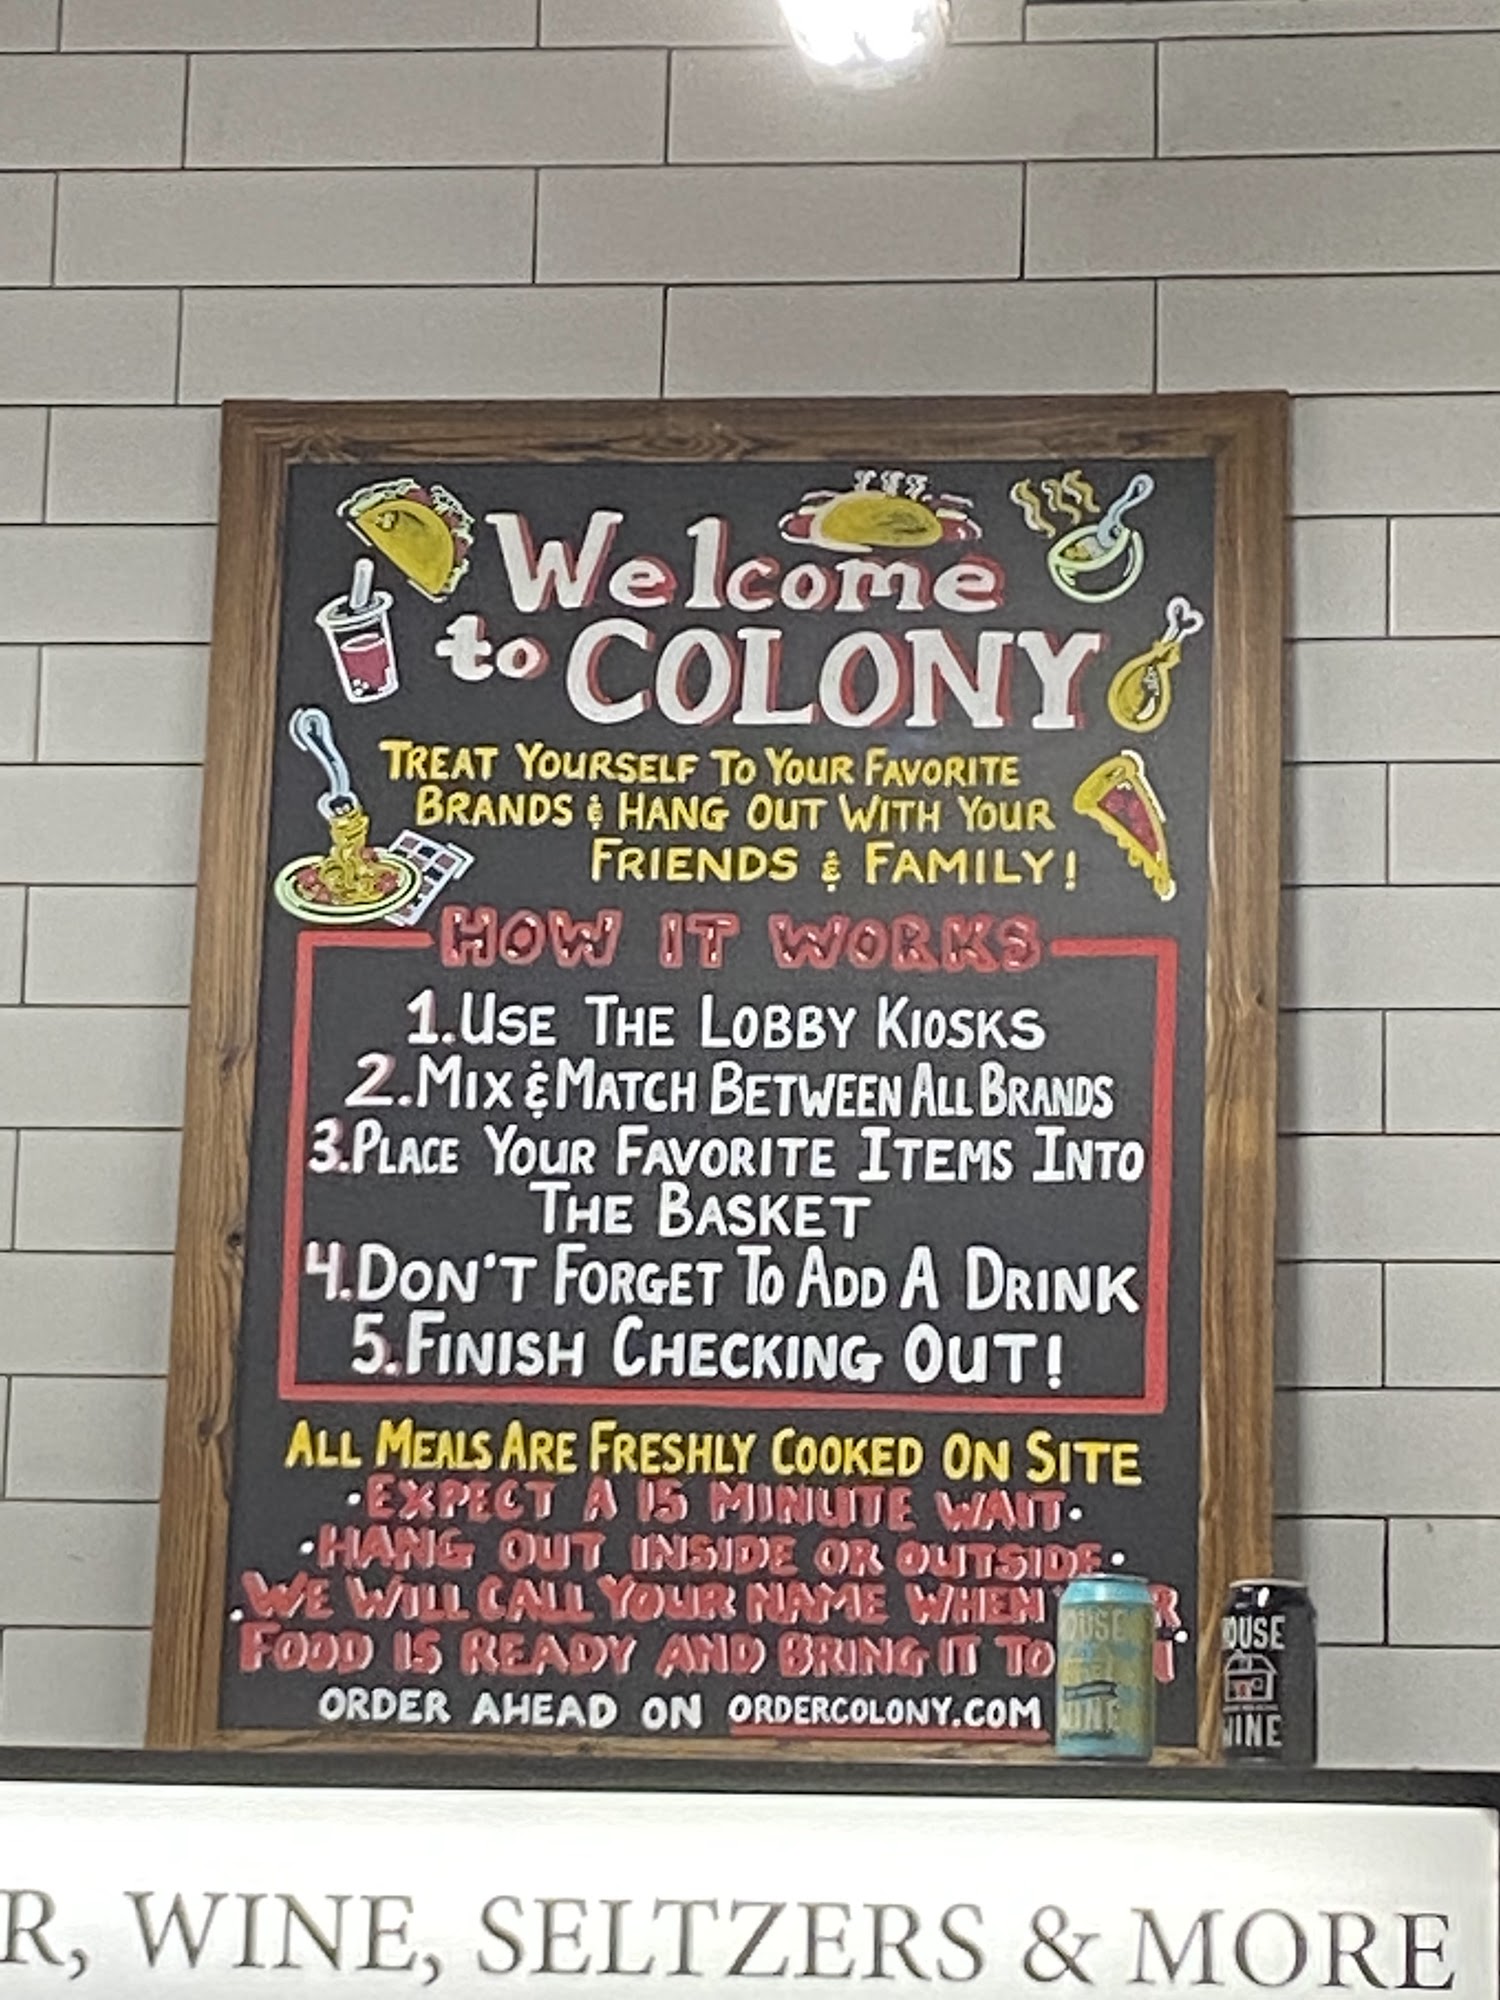 Welcome
to COLONY
TREAT YOURSELF TO YOUR FAVORITE
BRANDS & HANG OUT WITH YOUR
FRIENDS & FAMILY!
HOW IT WORKS
1. USE THE LOBBY KIOSKS
2. MIX & MATCH BETWEEN ALL BRANDS
3. PLACE YOUR FAVORITE ITEMS INTO
THE BASKET
4. DON'T FORGET TO ADD A DRINK
5. FINISH CHECKING OUT!
ALL MEALS ARE FRESHLY COOKED ON SITE
•EXPECT A 15 MINUTE WAIT•
•HANG OUT INSIDE OR OUTSIDE•
•WE WILL CALL YOUR NAME WHEN
FOOD IS READY AND BRING IT TO
ORDER AHEAD ON ORDERCOLONY.COM
HOUSE
WINE
HOUSE
WINE
R, WINE, SELTZERS & MORE